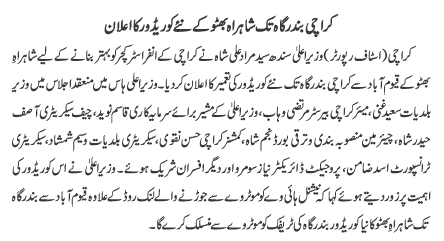 کراچی بندرگاہ تک شاہراہ بھٹو کے نئے کوریڈور کا اعلان
کراچی (اسٹاف رپورٹر) وزیراعلیٰ سندھ سید مراد علی شاہ نے کراچی کے انفراسٹرکچر کو بہتر بنانے کے لیے شاہراہ
بھٹو کے قیوم آباد سے کراچی بندرگاہ تک نئے کوریڈور کی تعمیر کا اعلان کردیا۔ وزیراعلیٰ ہاس میں منعقدہ اجلاس میں وزیر
بلدیات سعید غنی، میئر کراچی بیرسٹر مرتضی وہاب، وزیراعلیٰ کے مشیر برائے سرمایہ کاری قاسم نوید، چیف سیکریٹری آصف
حیدر شاہ، چیئرمین منصوبہ بندی و ترقی بورڈ نجم شاہ، کمشنر کراچی حسن نقوی، سیکریٹری بلدیات وسیم شمشاد، سیکریٹری
ٹرانسپورٹ اسد ضامن، پروجیکٹ ڈائریکٹر نیاز سومرو اور دیگر افسران شریک ہوئے۔ وزیراعلیٰ نے اس کوریڈور کی
اہمیت پر زور دیتے ہوئے کہا کہ نیشنل ہائی وے کو موٹروے سے جوڑنے والے لنک روڈ کے علاوہ قیوم آباد سے بندرگاہ
تک شاہراہ بھٹو کا نیا کوریڈور بندرگاہ کی ٹریفک کو موٹروے سے منسلک کرے گا۔